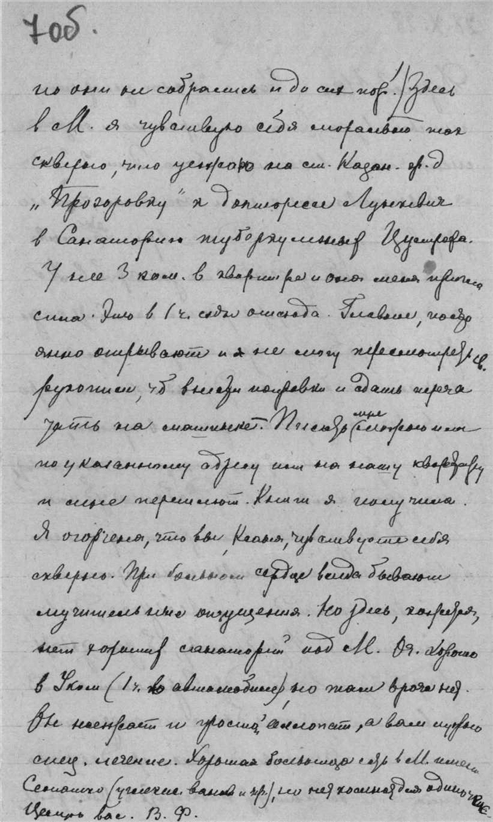 7 об.
но они не собрались и до сих пор! Здесь
в М. я чувствую себя морально так
скверно, что уезжаю на ст. Казан. ж. д
„Прозоровку" к докторессе
в Санаторию туберкулезных
У нее 3 ком. в квартире и она меня пригла
сила. Это в 1 ч. езды отсюда. Главное, посто
янно отрывают и я не могу пересмотреть св.
рукописи, чтоб внести поправки и сдать перепе
чатать на машинке. Писать мне можно или
по указанному адресу или на нашу квартиру
и мне перешлют. Книги я получила.
Я огорчена, что вы, Ксенья, чувствуете себя
скверно. При больном сердце всегда бывают
мучительные ощущения. Но здесь, кажется,
нет хороших санаторий под М. Оч. хорошо
в Узком (1 ч. на автомобиле), но там врача нет.
Вы не и простой, а вам нужно
спец. лечение. Хорошая больница есть в М. имени
Семашко (углекис ванны и пр), но нет комнат для одиночных.
Целую вас. В. Ф.